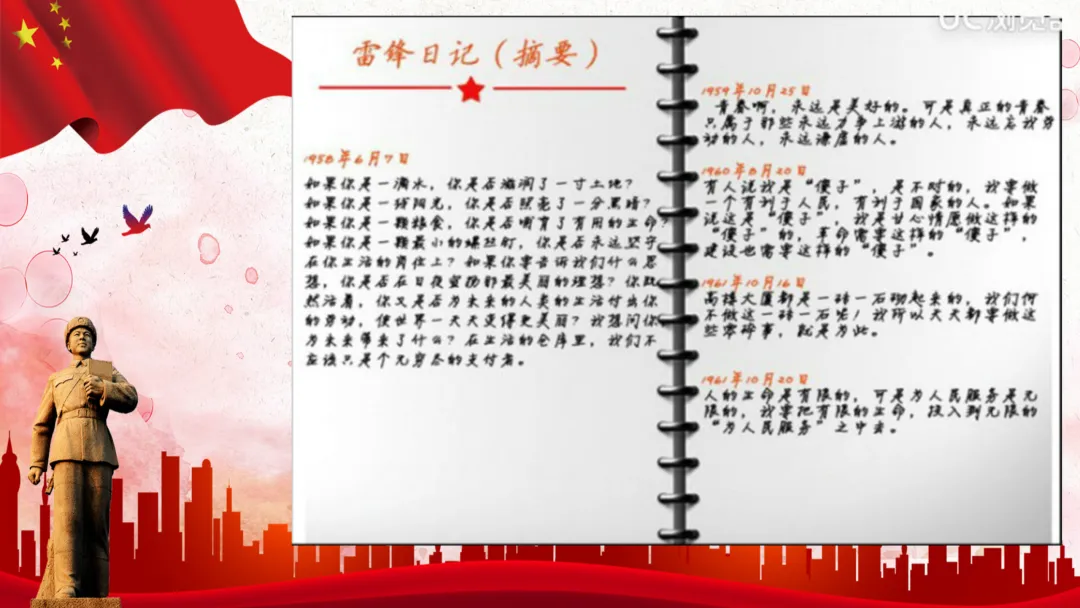 UC浏览器
雷锋日记（摘要）
1958年6月7日
如果你是一滴水，你是否滋润了一寸土地？
如果你是一线阳光，你是否照亮了一分黑暗？
如果你是一颗粮食，你是否哺育了有用的生命？
如果你是一颗最小的螺丝钉，你是否永远坚守
在你生活的岗位上？如果你要告诉我们什么思
想，你是否在日夜宣扬那最美丽的理想？你既
然活着，你又是否为未来的人类的生活付出你
的劳动，使世界一天天变得更美丽？我想问你
为未来带来了什么？在生活的仓库里，我们不
应该只是个无穷尽的支付者。
1959年10月25日
青春啊，永远是美好的。可是真正的青春
只属于那些永远力争上游的人，永远忘我劳
动的人，永远谦虚的人。
1960年8月20日
有人说我是“傻子”，是不对的，我要做
一个有利于人民，有利于国家的人。如果
说这是“傻子”，我是甘心情愿做这样的
“傻子”的，革命需要这样的“傻子”，
建设也需要这样的“傻子”。
1961年10月16日
高楼大厦都是一砖一石砌起来的，我们何
不做这一砖一石呢！我所以天天都要做这
些零碎事，就是为此。
1961年10月20日
人的生命是有限的，可是为人民服务是无
限的，我要把有限的生命，投入到无限的
“为人民服务”之中去。